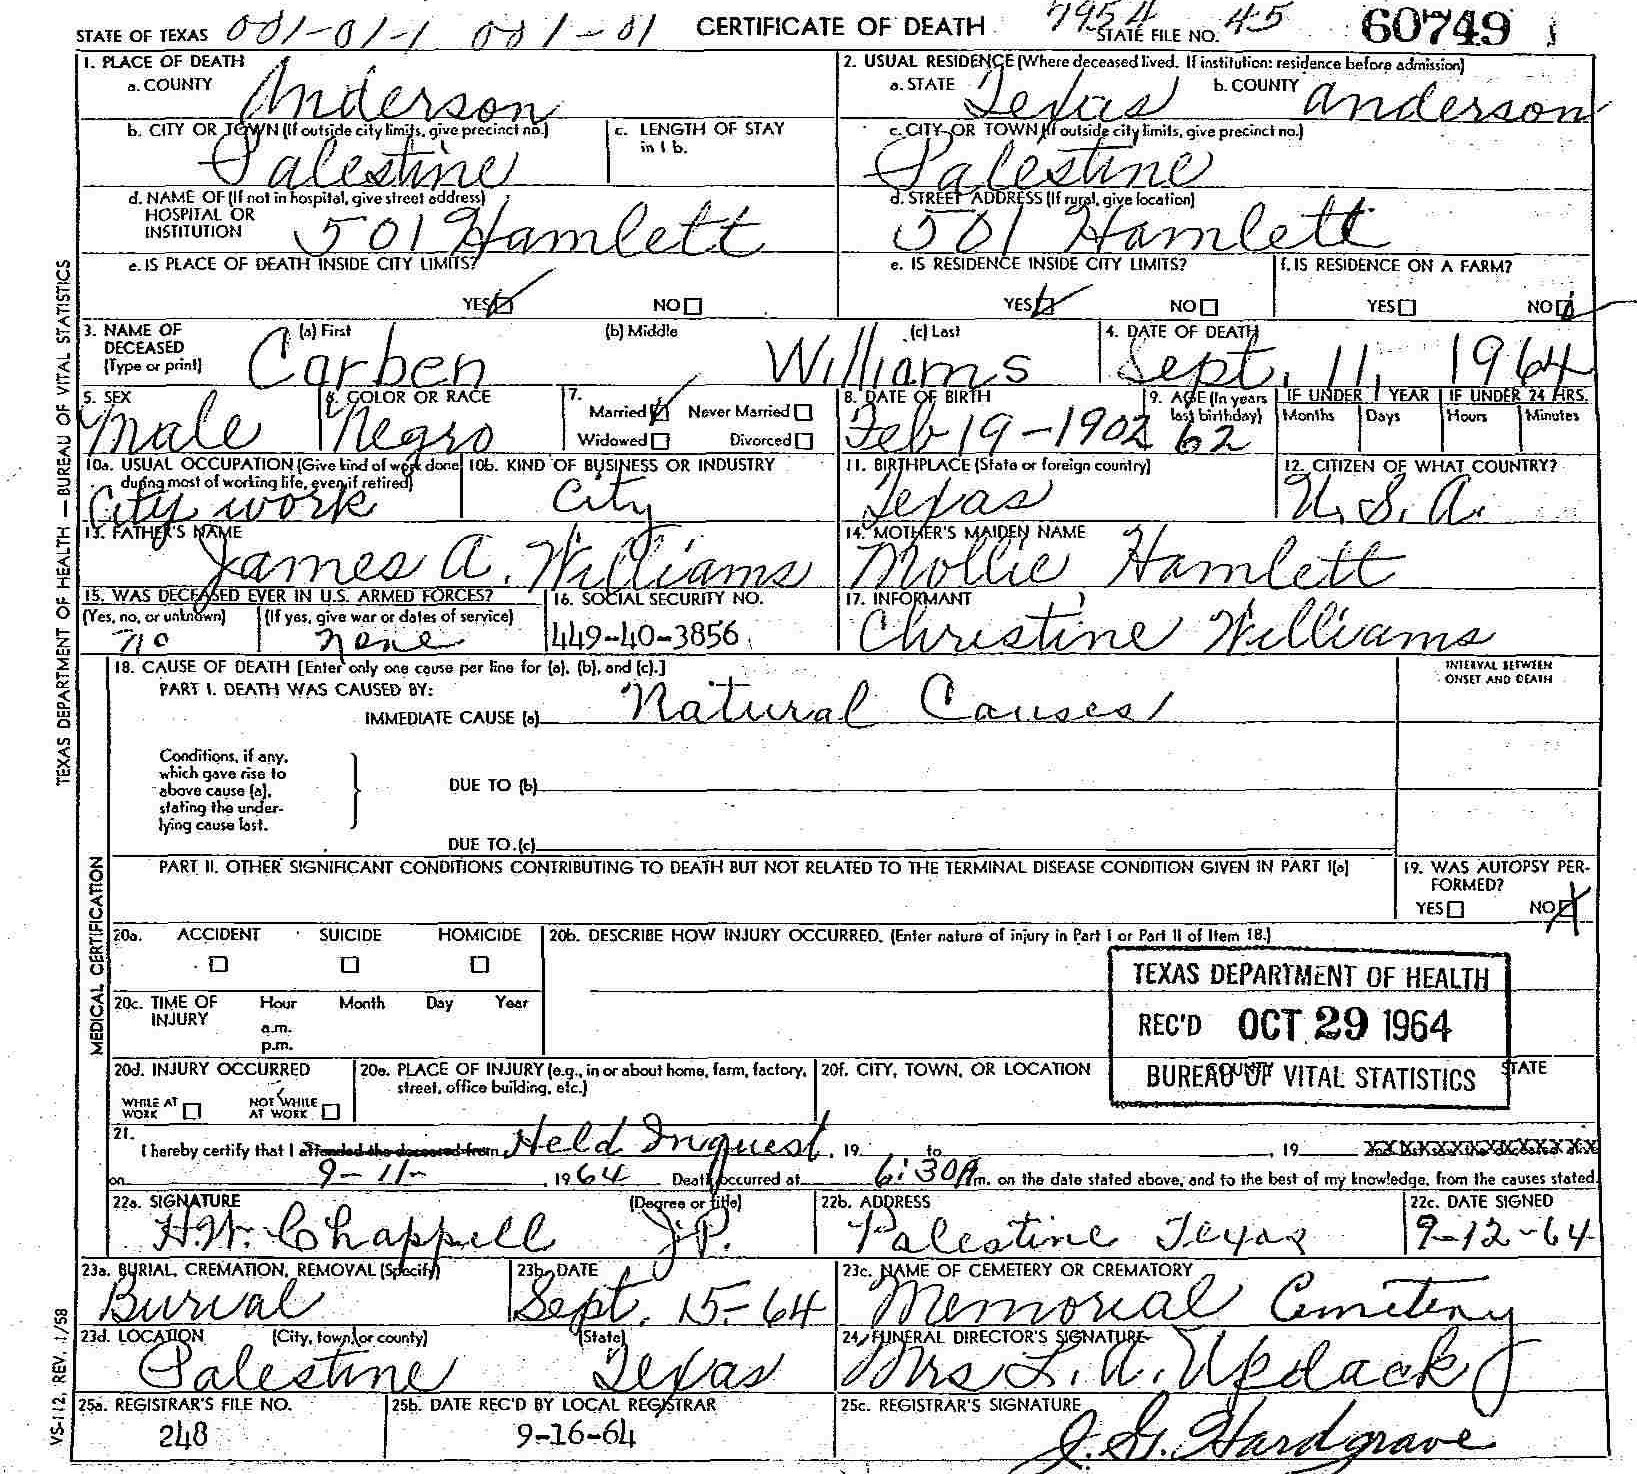 STATE OF TEXAS 001-01-1 001-01 CERTIFICATE OF DEATH 7954 STATE FILE NO. 45 60749
1. PLACE OF DEATH
a. COUNTY Anderson
2. USUAL RESIDENCE (Where deceased lived. If institution: residence before admission)
a. STATE Texas b. COUNTY Anderson
b. CITY OR TOWN (If outside city limits, give precinct no.) Palestine
c. LENGTH OF STAY in 1 b.
c. CITY OR TOWN (If outside city limits, give precinct no.) Palestine
d. NAME OF (If not in hospital, give street address)
HOSPITAL OR
INSTITUTION 501 Hamlett
d. STREET ADDRESS (If rural, give location)
501 Hamlett
e. IS PLACE OF DEATH INSIDE CITY LIMITS?
YES NO
e. IS RESIDENCE INSIDE CITY LIMITS?
YES NO
f. IS RESIDENCE ON A FARM?
YES NO
3. NAME OF DECEASED (Type or print)
(a) First (b) Middle (c) Last
Carben Williams
4. DATE OF DEATH
Sept. 11, 1964
5. SEX
Male
6. COLOR OR RACE
Negro
7. Married Never Married
Widowed Divorced
8. DATE OF BIRTH
Feb 19-1902
9. AGE (In years last birthday) 62
IF UNDER 1 YEAR
Months Days
IF UNDER 24 HRS.
Hours Minutes
10a. USUAL OCCUPATION (Give kind of work done during most of working life, even if retired)
City work
10b. KIND OF BUSINESS OR INDUSTRY
City
11. BIRTHPLACE (State or foreign country)
Texas
12. CITIZEN OF WHAT COUNTRY?
U.S.A.
13. FATHER'S NAME
James A. Williams
14. MOTHER'S MAIDEN NAME
Mollie Hamlett
15. WAS DECEASED EVER IN U.S. ARMED FORCES?
(Yes, no, or unknown) (If yes, give war or dates of service)
no none
16. SOCIAL SECURITY NO.
449-40-3856
17. INFORMANT
Christine Williams
18. CAUSE OF DEATH [Enter only one cause per line for (a), (b), and (c).]
INTERVAL BETWEEN
ONSET AND DEATH
PART I. DEATH WAS CAUSED BY:
IMMEDIATE CAUSE (a) Natural Causes
Conditions, if any,
which gave rise to
above cause (a),
stating the under-
lying cause last.
DUE TO (b)
DUE TO (c)
PART II. OTHER SIGNIFICANT CONDITIONS CONTRIBUTING TO DEATH BUT NOT RELATED TO THE TERMINAL DISEASE CONDITION GIVEN IN PART I(a)
19. WAS AUTOPSY PER-
FORMED?
YES NO
20a. ACCIDENT SUICIDE HOMICIDE
20b. DESCRIBE HOW INJURY OCCURRED. (Enter nature of injury in Part I or Part II of Item 18.)
20c. TIME OF INJURY Hour Month Day Year
a.m.
p.m.
TEXAS DEPARTMENT OF HEALTH
REC'D OCT 29 1964
BUREAU OF VITAL STATISTICS
20d. INJURY OCCURRED
WHILE AT WORK NOT WHILE AT WORK
20e. PLACE OF INJURY (e.g., in or about home, farm, factory, street, office building, etc.)
20f. CITY, TOWN, OR LOCATION COUNTY STATE
21.
I hereby certify that I attended the deceased from Held Inquest, 19 to , 19 and last saw the deceased alive
on 9-11- , 1964 Death occurred at 6:30A m. on the date stated above, and to the best of my knowledge, from the causes stated.
22a. SIGNATURE (Degree or title)
H.W. Chappell J.P.
22b. ADDRESS
Palestine Texas
22c. DATE SIGNED
9-12-64
23a. BURIAL, CREMATION, REMOVAL (Specify)
Burial
23b. DATE
Sept. 15-64
23c. NAME OF CEMETERY OR CREMATORY
Memorial Cemetery
23d. LOCATION (City, town, or county) (State)
Palestine Texas
24. FUNERAL DIRECTOR'S SIGNATURE
Mrs L. A. Updack
25a. REGISTRAR'S FILE NO.
248
25b. DATE REC'D BY LOCAL REGISTRAR
9-16-64
25c. REGISTRAR'S SIGNATURE
J. G. Hardgrave
TEXAS DEPARTMENT OF HEALTH — BUREAU OF VITAL STATISTICS
MEDICAL CERTIFICATION
VS-112, REV. 1/58